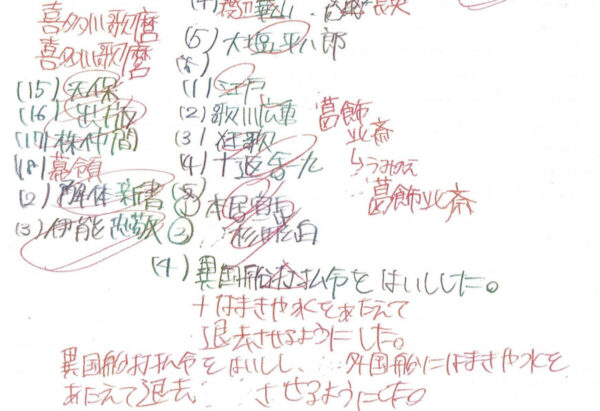 喜多川歌麿
喜多川歌麿
(15) 天保
(16) 出版
(17) 株仲間
(18) 幕領
(2) 解体新書
(3) 伊能忠敬
(4) 渡辺崋山、高野長英
(5) 大塩平八郎
(1) 江戸
(2) 歌川広重
(3) 狂歌
(4) 十返舎一九
① 本居宣長
② 杉田玄白
葛飾
北斎
葛飾北斎
(4) 異国船打払令をはいしした。
+なまきや水をあたえて
退去させるようにした。
異国船打払令をはいしし、外国船にはまきや水を
あたえて退去 させるようにした。